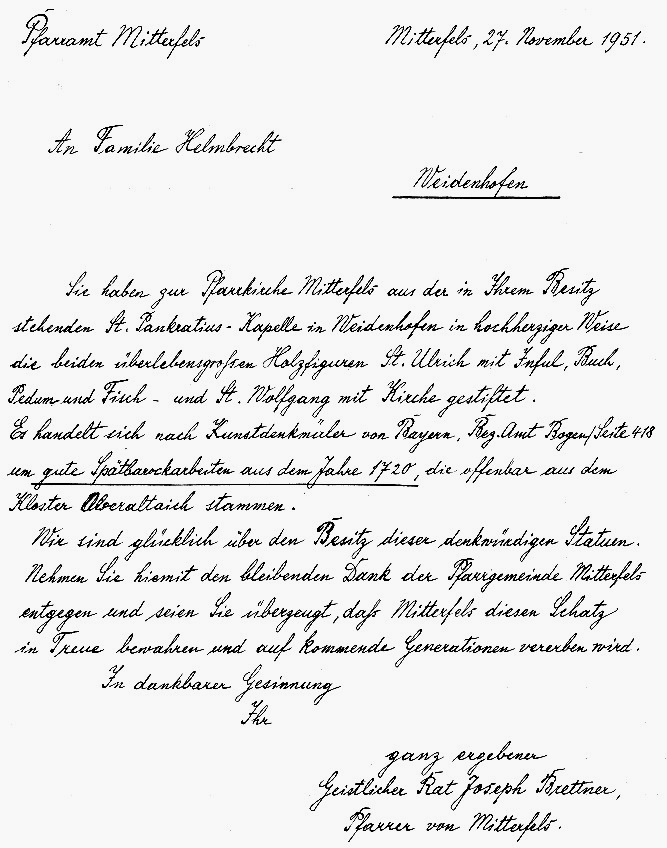 Pfarramt Mitterfels
Mitterfels, 27. November 1951.
An Familie Helmbrecht
Weidenhofen
Sie haben zur Pfarrkirche Mitterfels aus der in Ihrem Besitz
stehenden St. Pankratius - Kapelle in Weidenhofen in hochherziger Weise
die beiden überlebensgroßen Holzfiguren St. Ulrich mit Inful, Buch,
Pedum und Fisch - und St. Wolfgang mit Kirche gestiftet.
Es handelt sich nach Kunstdenkmäler von Bayern, Bez. Amt Bogen/Seite 418
um gute Spätbarockarbeiten aus dem Jahre 1720, die offenbar aus dem
Kloster Oberaltaich stammen.
Wir sind glücklich über den Besitz dieser denkwürdigen Statuen.
Nehmen Sie hiemit den bleibenden Dank der Pfarrgemeinde Mitterfels
entgegen und seien Sie überzeugt, daß Mitterfels diesen Schatz
in Treue bewahren und auf kommende Generationen vererben wird.
In dankbarer Gesinnung
Ihr
ganz ergebener
Geistlicher Rat Joseph Brettner,
Pfarrer von Mitterfels.